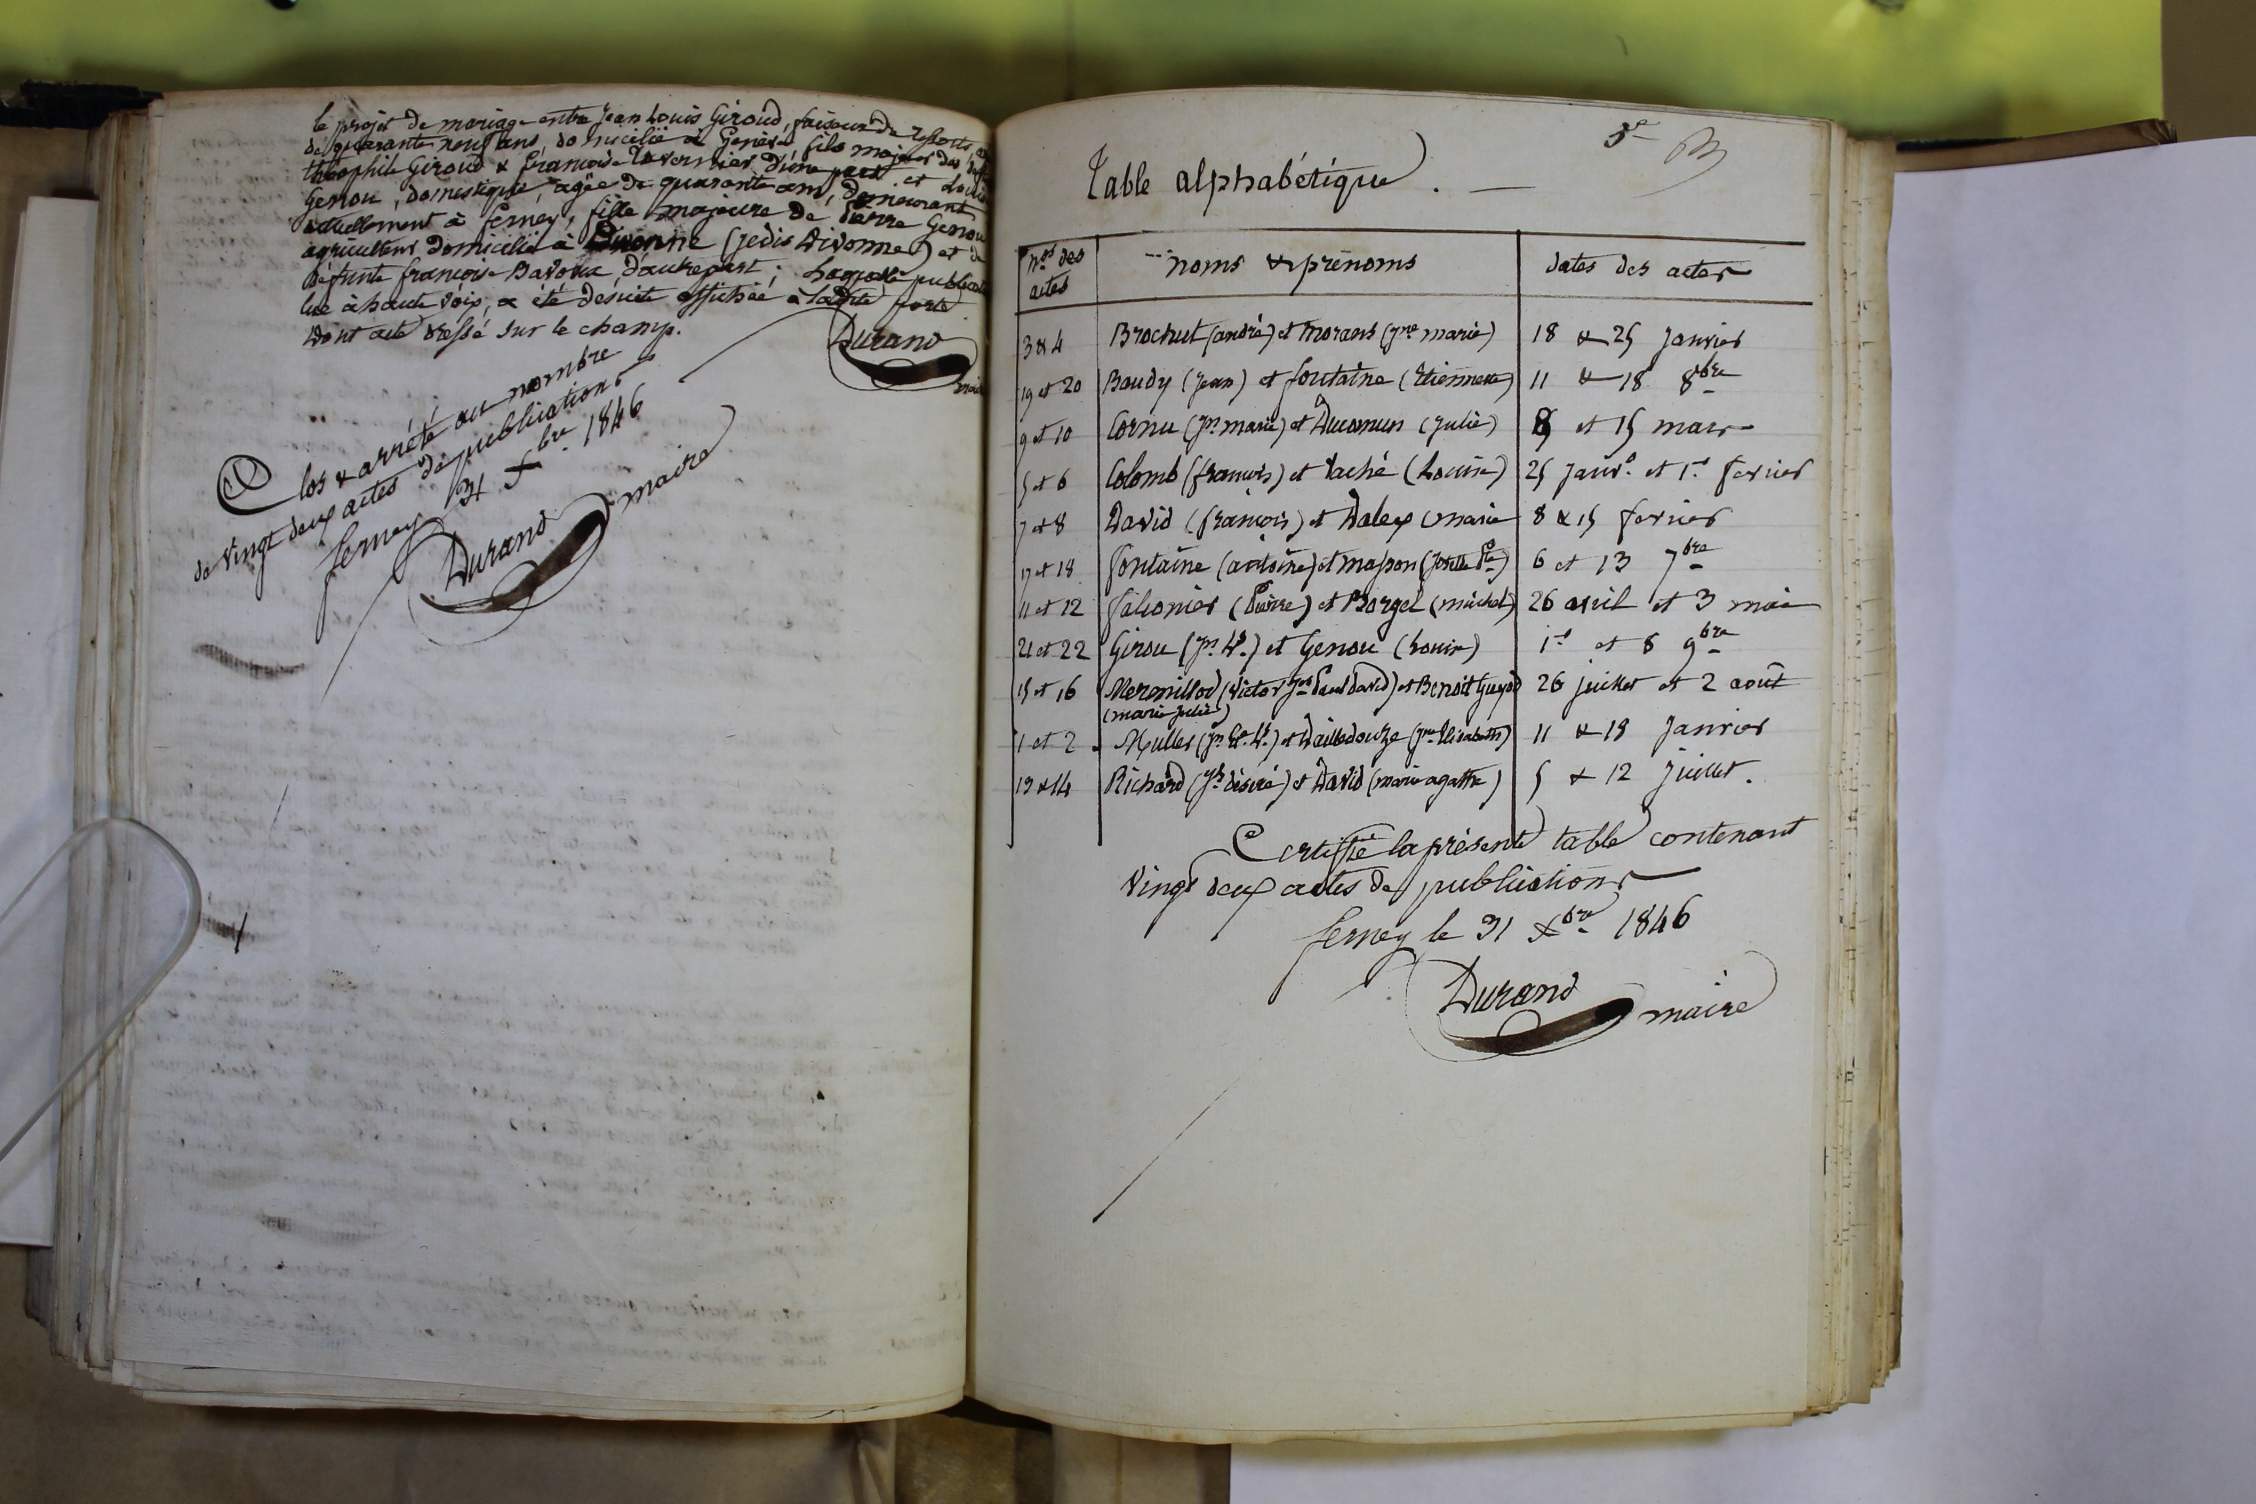 le projet de mariage entre Jean Louis Giroud, faiseur de ressorts
de quarante neuf ans, domicilié à Genève fils majeur des
théophile Giroud & françoise Tavernier d'une part et Louise
Genou, domestique, agée de quarante ans, demeurant
actuellement à ferney, fille majeure de Pierre Genou
agriculteur domicilié à Divonne (je dis Divonne) et de
défunte françoise Badoux d'autrepart; Laquelle
lue à haute voix, a été désuite affichée à ladite porte
Dont acte dressé sur le champ.
Durand
maire
Clos & arrêté au nombre
de vingt deux actes de publications
ferney 31 Xbre 1846
Durand maire
Table alphabétique. —
3e
Nos des actes | noms & prénoms | dates des actes
3 & 4 | Brochut (andré) et Morans (jne marie) | 18 & 25 Janvier
19 et 20 | Baudy (jean) et fontaine (Etiennette) | 11 & 18 8bre
9 et 10 | Cornu (jn marie) et Ducomun (julie) | 8 et 15 mars
5 et 6 | Colomb (françois) et Vaché (Louise) | 25 janvr. et 1er fevrier
7 et 8 | David (françois) et Dalex (marie | 8 & 15 fevrier
17 et 18 | fontaine (antoine) et masson (josette | 6 et 13 7bre
11 et 12 | falconier (Pierre) et Borgel (michel) | 26 avril et 3 mai
21 et 22 | Girou (jn Ls.) et Genou (Louise) | 1er et 8 9bre
15 et 16 | Mermillod (victor Paul David) et Benoit Guyod | 26 juillet et 2 août
(marie julie)
1 et 2 | Muller (jn Ls.) et Dailledouze (jne Elisabeth) | 11 & 18 Janvier
13 & 14 | Richard (jh désiré) et David (marie agathe) | 5 & 12 Juillet.
Certifié la présente table contenant
vingt deux actes de publications
ferney le 31 Xbre 1846
Durand maire